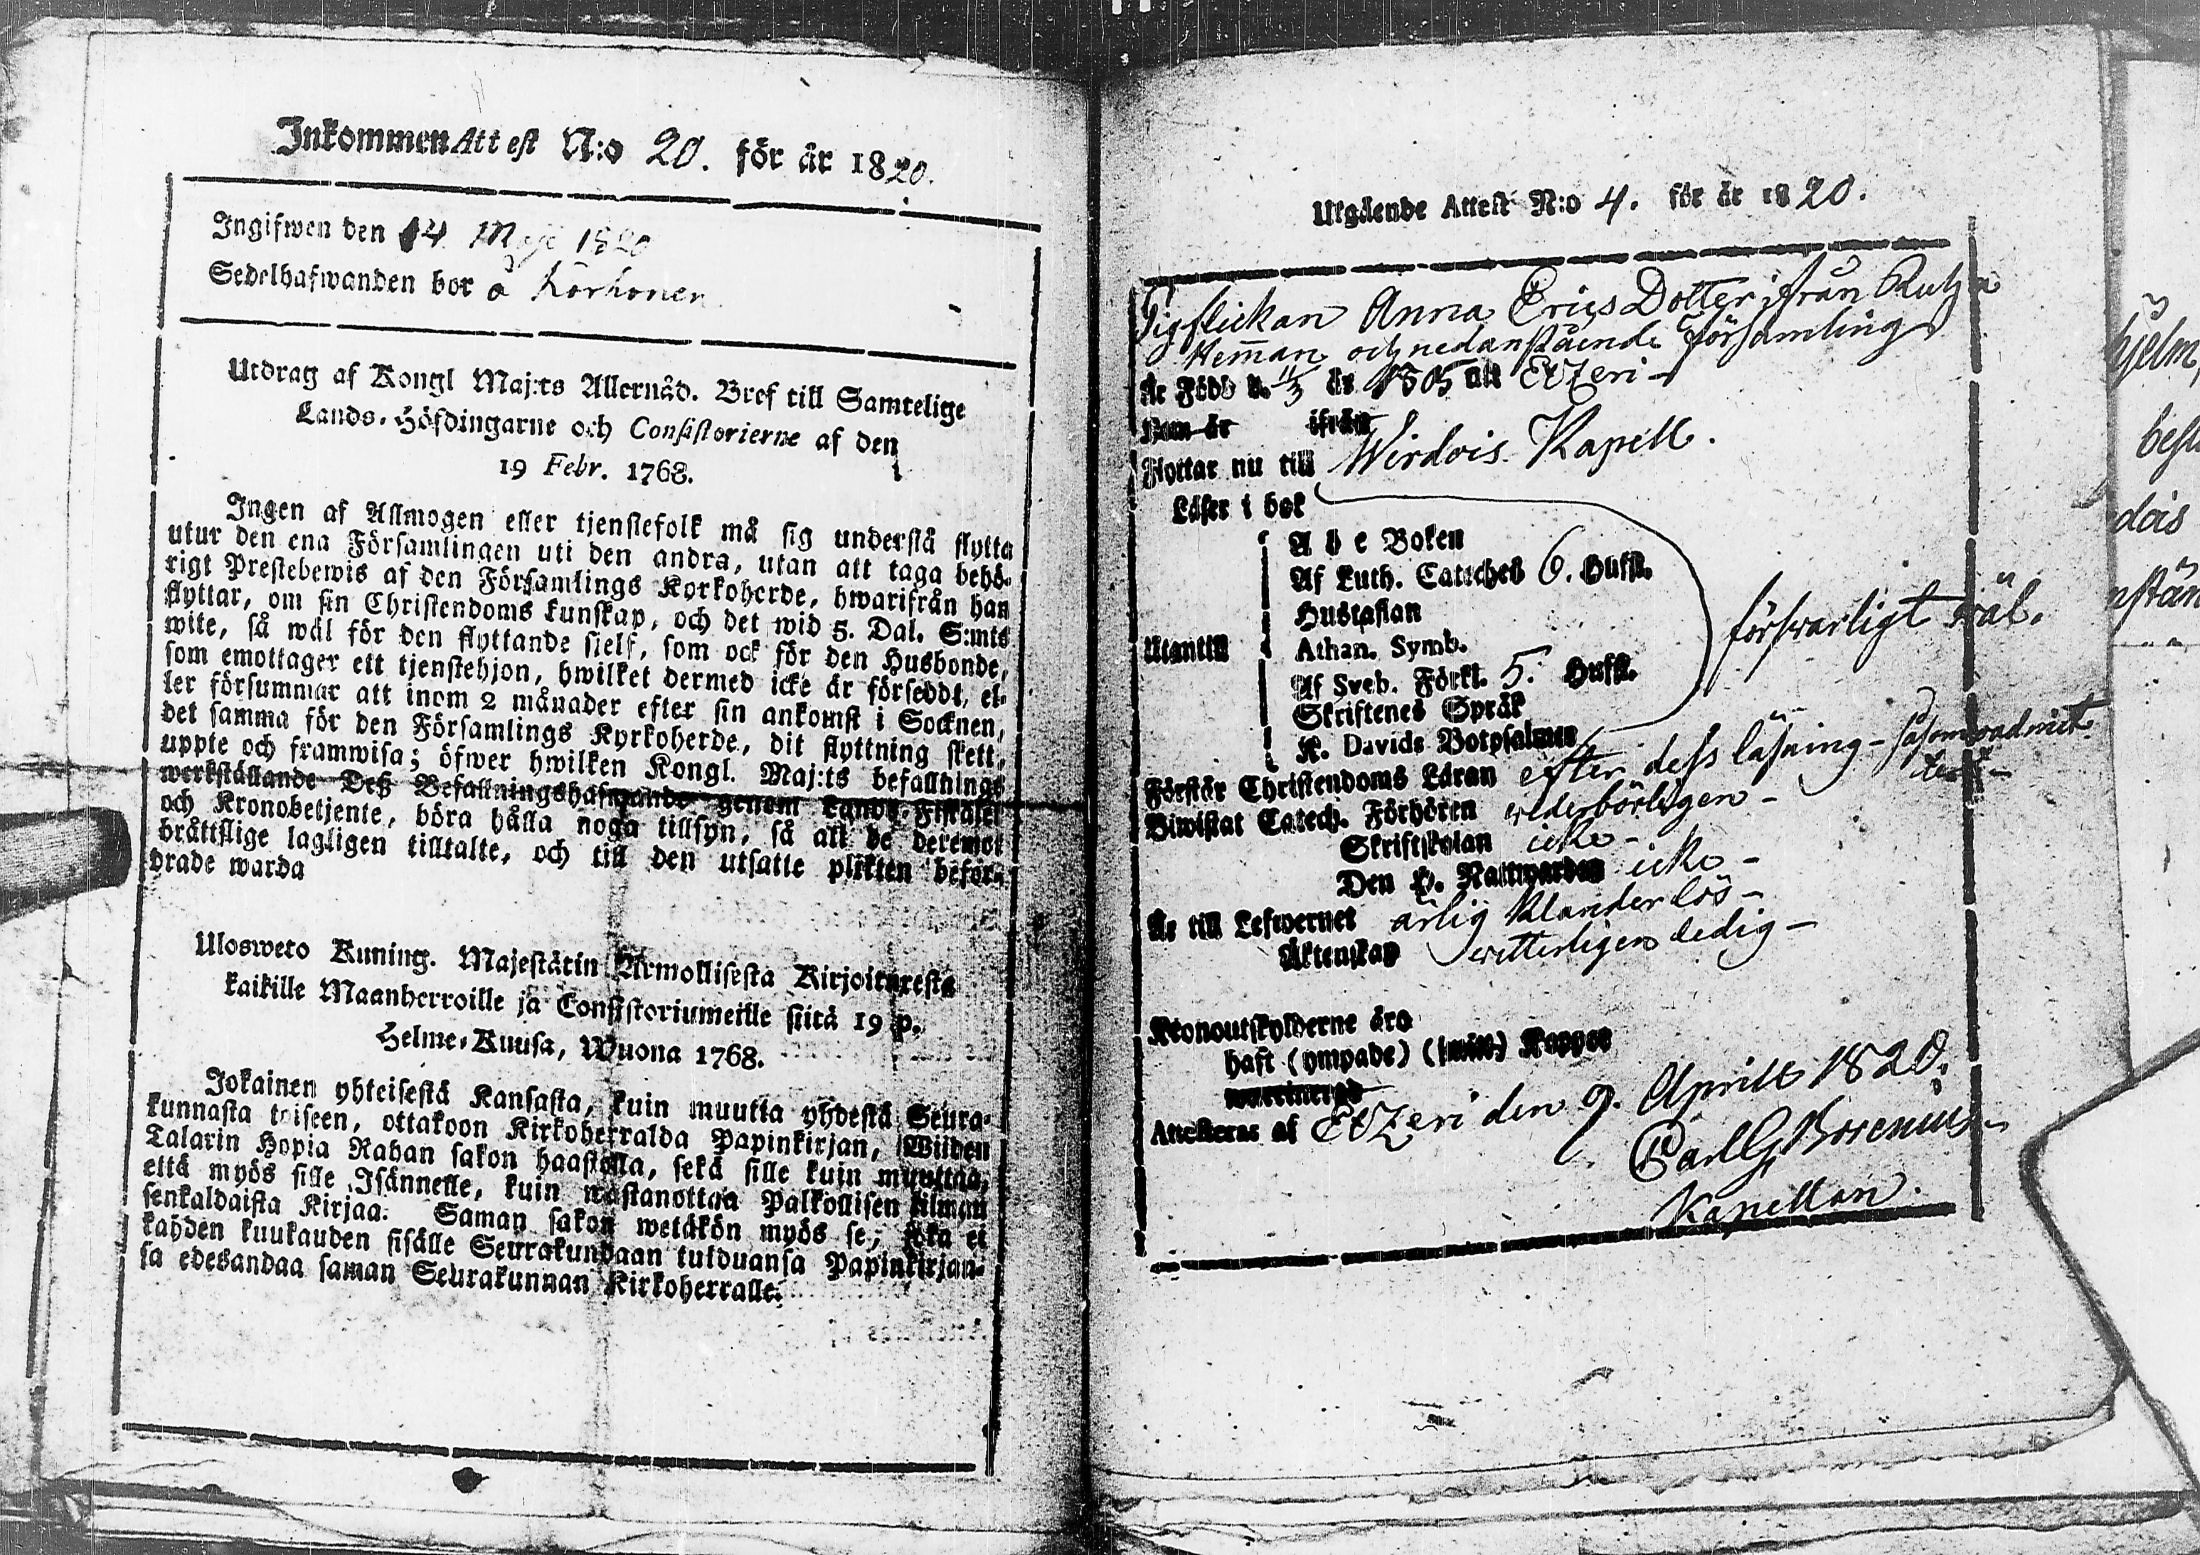 Inkommen Attest N:o 20. för år 1820.
Ingifwen den 14 Maji 1820
Sedelhafwanden bor å Korhonen
Utdrag af Kongl Maj:ts Allernåd. Bref till Samtelige
Lands-Höfdingarne och Consistorierne af den
19 Febr. 1768.
Ingen af Allmogen eller tjenstefolk må sig understå flytta
utur den ena Församlingen uti den andra, utan att taga behö-
rigt Prestebewis af den Församlings Kyrkoherde, hwarifrån han
flyttar, om sin Christendoms kunskap, och det wid 5. Dal. S:mts
wite, så wäl för den flyttande sielf, som ock för den Husbonde,
som emottager ett tjenstehjon, hwilket dermed icke är försedd, el-
ler försummar att inom 2 månader efter sin ankomst i Socknen,
det samma för den Församlings Kyrkoherde, dit flyttning skett,
uppte och framwisa; öfwer hwilken Kongl. Maj:ts befallnings
werkställande Deß Befallningshafwande genom Lands-Fiskaler
och Kronobetjente, böra hålla noga tillsyn, så att de deremot
bråttslige lagligen tilltalte, och till den utsatte plikten beford-
drade warda
Ulosweto Kuning. Majestätin Armollisesta Kirjoituxesta
kaikille Maanherroille ja Consistoriumeille siitä 19 p.
Helme-Kuusa, Wuona 1768.
Jokainen yhteisestä Kansasta, kuin muutta yhdestä Seura-
kunnasta toiseen, ottakoon Kirkoherralda Papinkirjan, Wiiden
Talarin Hopia Rahan sakon haastolla, sekä sille kuin muuttaa,
että myös sille Isännelle, kuin wastanottaa Palkollisen ilman
senkaldaista Kirjaa. Saman sakon wetäkön myös se, joka ei
kahden kuukauden sisälle Seurakundaan tulduansa Papinkirjan-
sa edesandaa saman Seurakunnan Kirkoherralle.
Utgående Attest N:o 4. för år 1820.
Pigflickan Anna Erics Dotter ifrån
Hemman och nedanstående Församling
Är Född d. 11/3 år 1805 uti Etzeri
Kom år ifrån
Flyttar nu till Wirdois Kapell.
Läser i bok
A b c Boken
Af Luth. Cateches 6. Hufst.
Hustaflan
Utantill Athan. Symb. försvarligt wäl.
Af Sveb. Förkl. 5. Hufst.
Skriftenes Språk
K. Davids Botpsalmer
Förstår Christendoms Läran efter dess läsning - såsom
Biwistat Catech. Förhören wederbörligen -
Skriftskolan icke -
Den H. Nattwarden icke -
Är till Lefwernet ärlig klanderlös -
Äktenskap witterligen ledig -
Kronoutskylderne äro
haft (ympade) Koppor
Attesteras af Etzeri den 9. Aprill 1820.
Carl G. Borenius
Kapellan.
hjelm